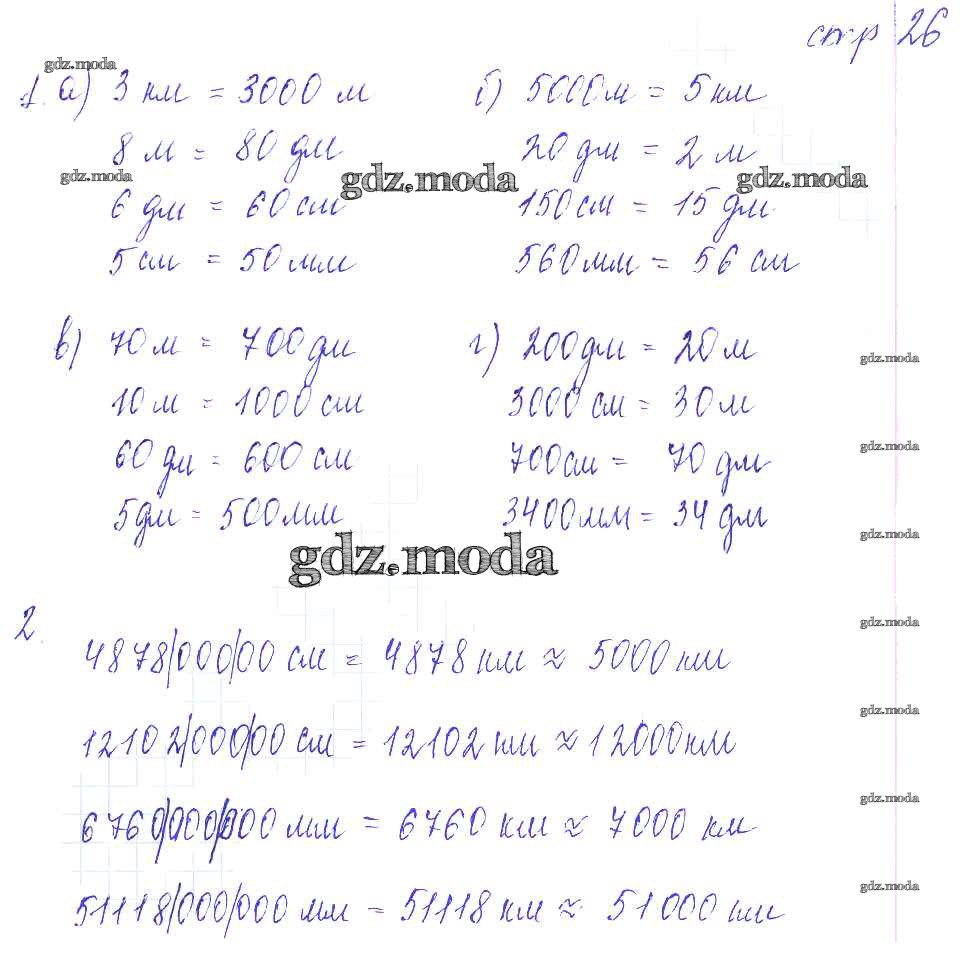 стр 26
gdz.moda
1. а) 3 км = 3000 м б) 5000м = 5 км
8 м = 80 дм 20 дм = 2 м
gdz.moda gdz.moda gdz.moda
6 дм = 60 см 150 см = 15 дм
5 см = 50 мм 560 мм = 56 см
в) 70 м = 700 дм г) 200 дм = 20 м
gdz.moda
10 м = 1000 см 3000 см = 30 м
gdz.moda
60 дм = 600 см 700 см = 70 дм
5 дм = 500 мм 3400 мм = 34 дм
gdz.moda
gdz.moda
2.
gdz.moda
4878|000|00 см = 4878 км ≈ 5000 км
gdz.moda
12102|000|00 см = 12102 км ≈ 12000 км
gdz.moda
6760|000|000 мм = 6760 км ≈ 7000 км
gdz.moda
51118|000|000 мм = 51118 км ≈ 51000 км